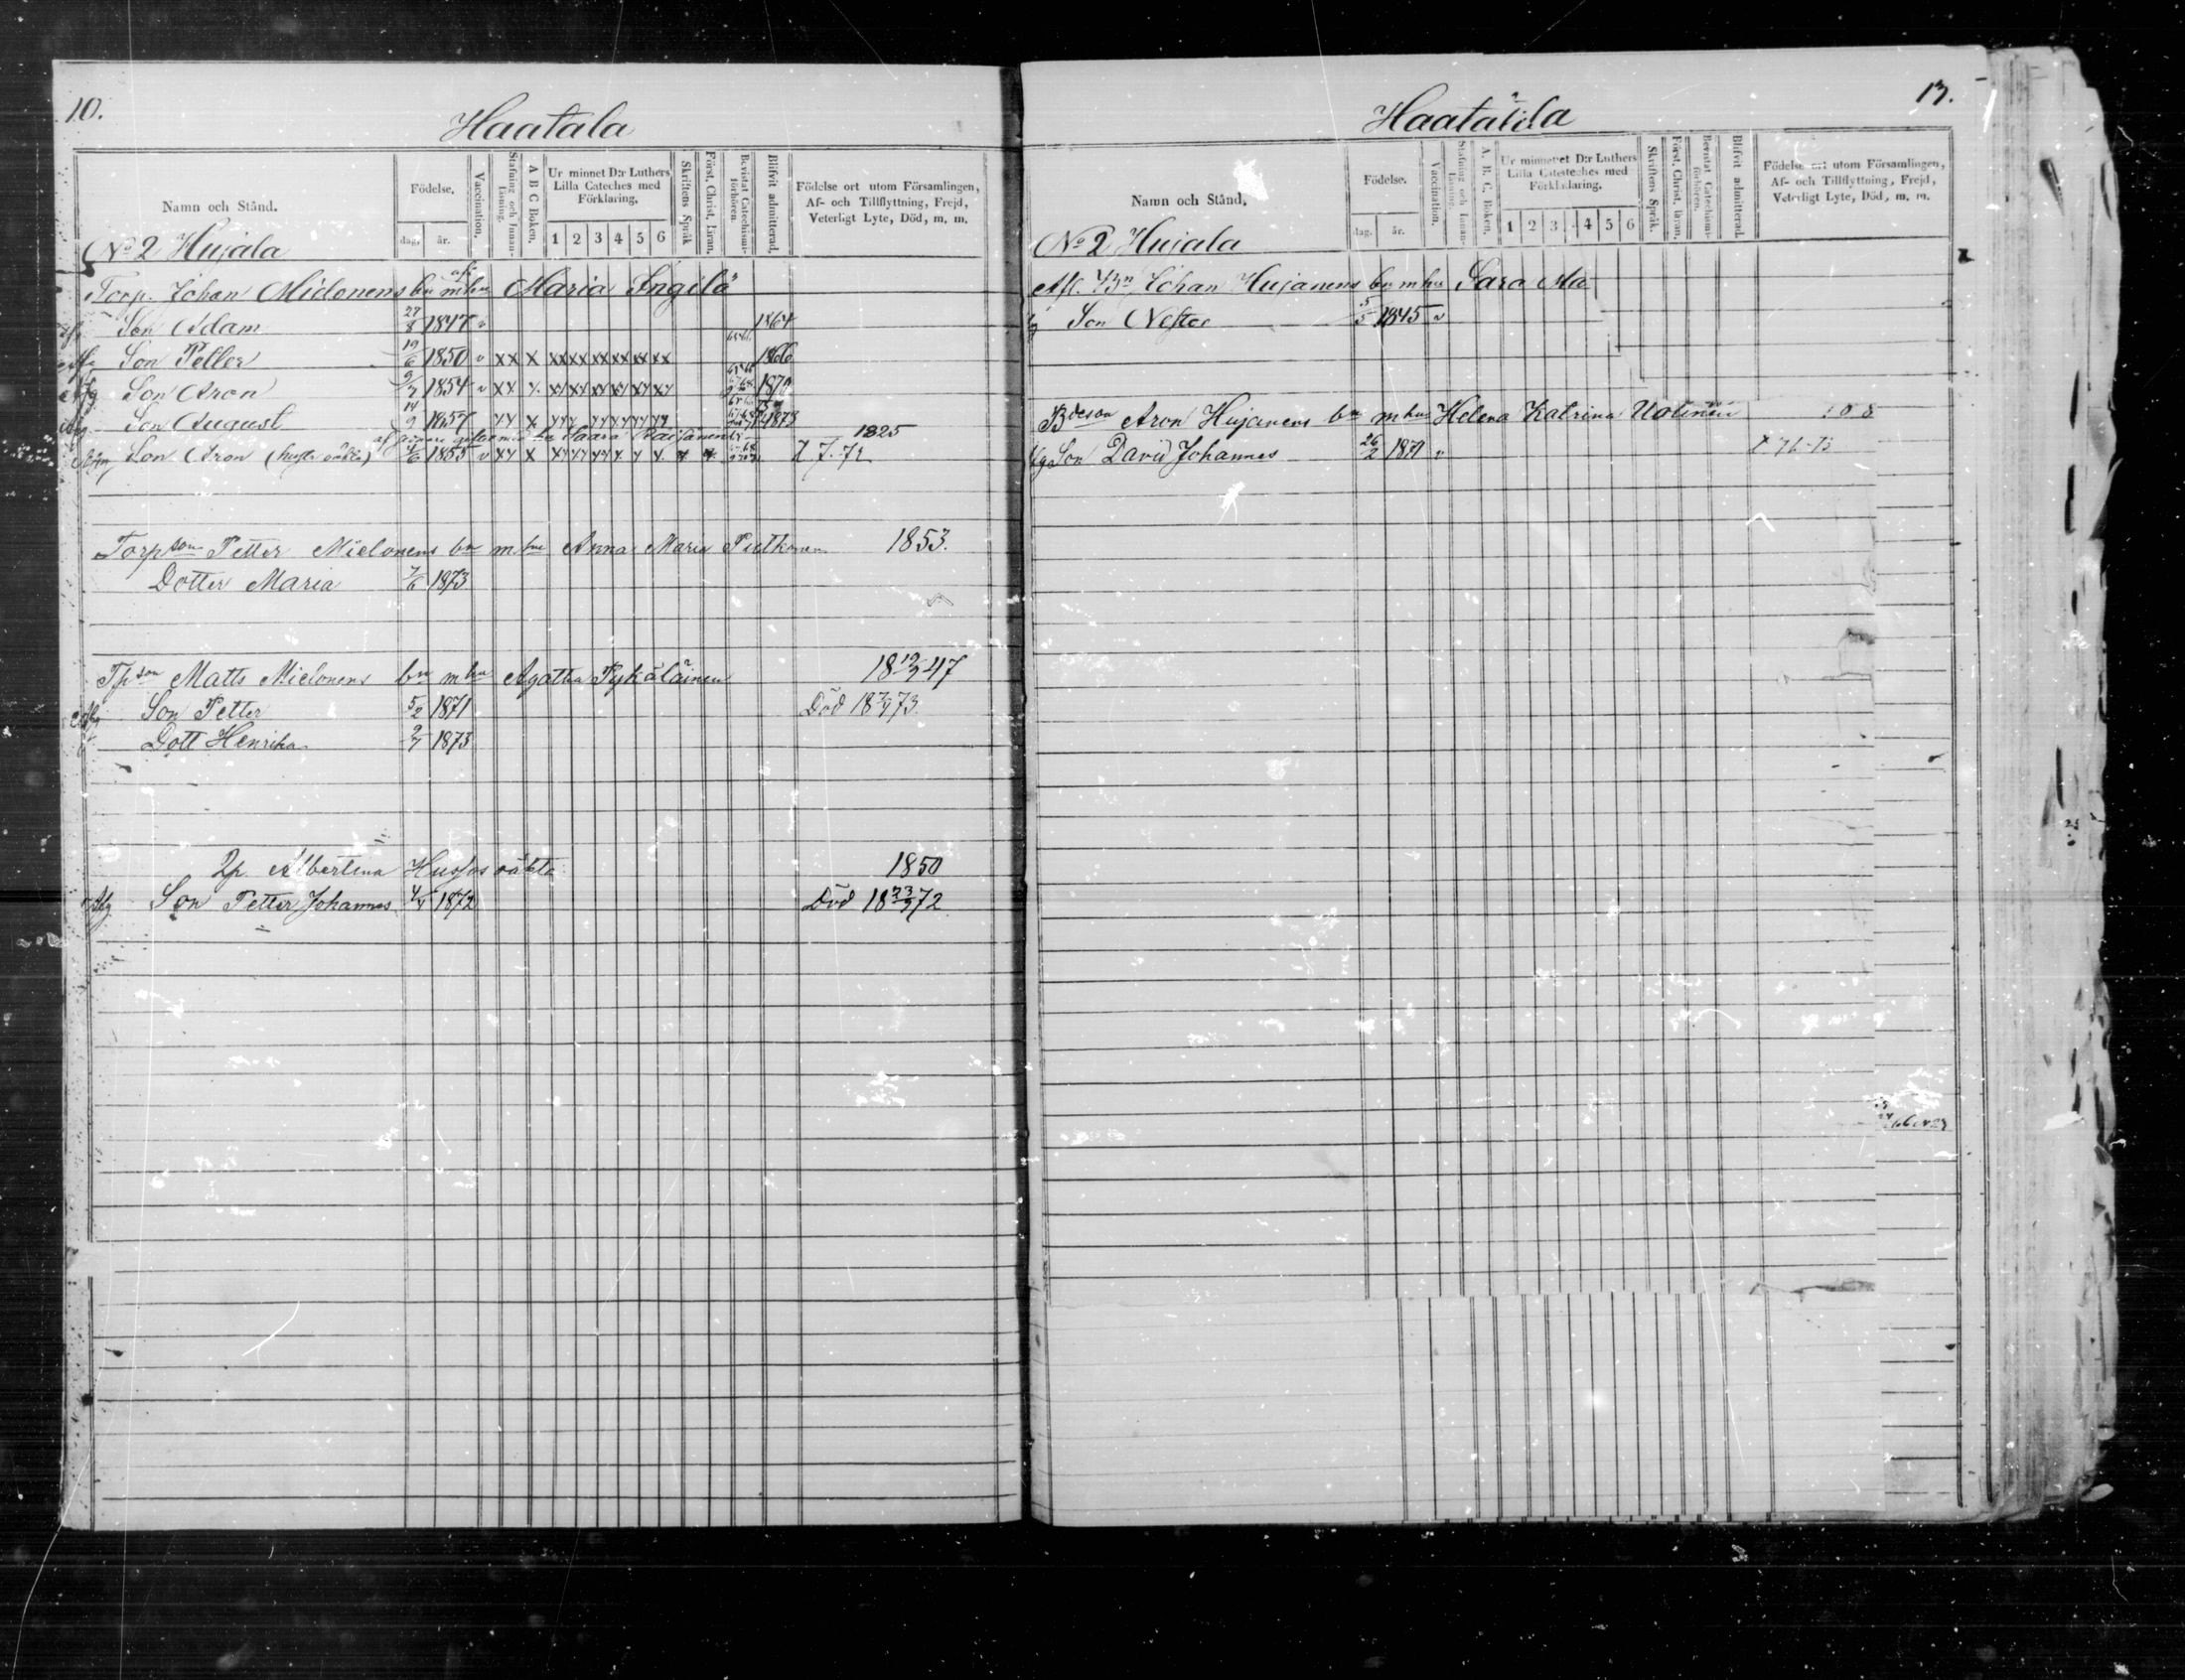 10.
Haatala
Namn och Stånd.
Födelse.
dag.
år.
Vaccination.
Stafning och Innan-Läsning.
A B C Boken.
Ur minnet D:r Luthers Lilla Cateches med Förklaring.
1 2 3 4 5 6
Skriftens Språk
Först. Christ. Läran.
Bevistat Catechismi-förhören.
Blifvit admitterad.
Födelse ort utom Församlingen, Af- och Tillflyttning, Frejd, Veterligt Lyte, Död, m. m.
No 2 Hujala
Torp. Johan Mielonens bn m hu Maria Ingilä
Son Adam 27/8 1847 v 1864
Afg Son Petter 19/6 1850 v xx x xx xx xx xx xx xx 1866
Afg Son Aron 9/7 1854 v xx x xx xx xx xx xx xx 1870
Afg Son August 14/9 1857 xx x 1873
Saara 1825
Afg Son Aron 1855 v xx x
Torpson Petter Mielonens bn m hu Anna Maria Pietkonen 1853.
Dotter Maria 7/6 1873
Tpson Matts Mielonens bn m hu Agatha Pykäläinen 18 19/3 47
Afg Son Petter 5/2 1871 Död 18 7/7 73.
Dott Henrika 2/7 1873
Qp Albertina 1850
Afg Son Petter Johannes 4/4 1872 Död 18 23/9 72
13.
Haatala
Namn och Stånd.
Födelse.
dag.
år.
Vaccination.
Stafning och Innan-Läsning.
A. B. C. Boken.
Ur minnet D:r Luthers Lilla Cateches med Förklaring.
1 2 3 4 5 6
Skriftens Språk.
Först. Christ. läran.
Bevistat Catechismi-förhören.
Blifvit admitterad.
Födelse ort utom Församlingen, Af- och Tillflyttning, Frejd, Veterligt Lyte, Död, m. m.
No 2 Hujala
Afl. Johan Hujanens bn m hu Sara Ma
Son Nestor 5/5 1845 v
Bdeson Aron Hujanens bn m hu Helena Katrina Uotinen
Afg Son David Johannes 26/2 1871 v